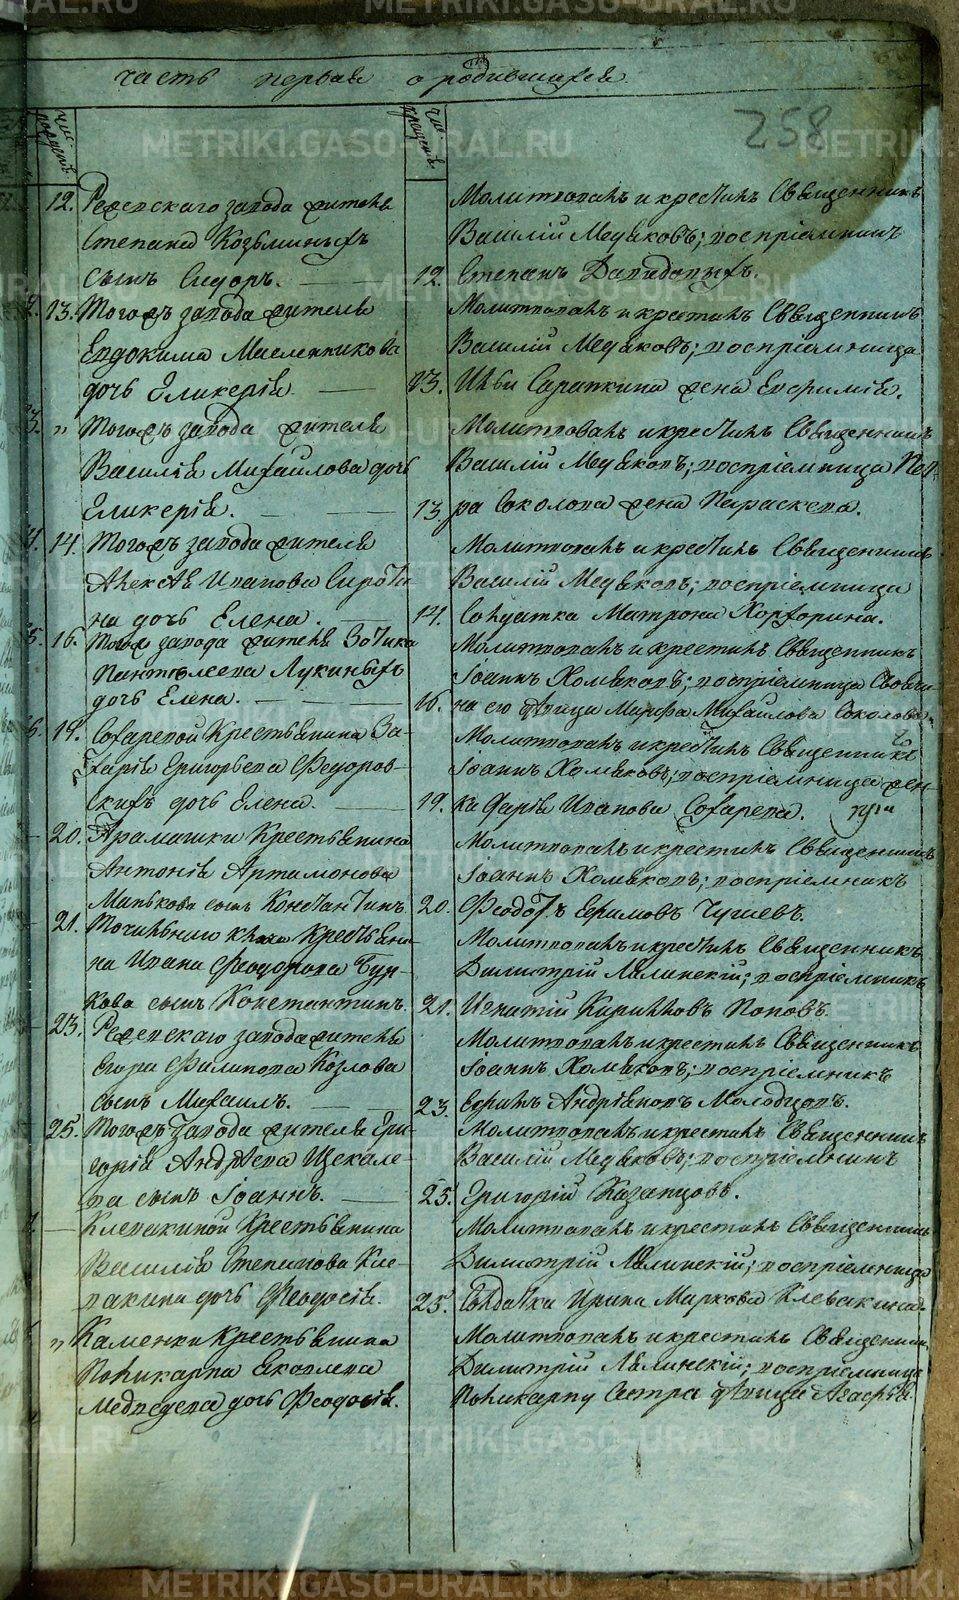 часть первая о родившихся
258
Чис. рождені.
Чис. крещені.
12. Режевскаго завода жителя
Степана Козьминыхъ
сынъ Сидоръ.
Молитвовалъ и крестилъ Священникъ
Василій Медяковъ; воспріемникъ
12. Степанъ Давидовыхъ.
13. Тогожъ завода жителя
Евдокима Масленникова
дочь Гликерія
Молитвовалъ и крестилъ Священникъ
Василій Медяковъ; воспріемница
13. жена Евфимія.
" Тогожъ завода жителя
Василія Михаилова дочь
Гликерія.
Молитвовалъ и крестилъ Священникъ
Василій Медяковъ; воспріемница Пет-
13 ра Соколова жена Параскева.
14. Тогожъ завода жителя
Алексѣя Иванова Сироти
на дочь Елена.
Молитвовалъ и крестилъ Священникъ
Василій Медяковъ; воспріемница
14. Солдатка Матрона
16. Тогожъ завода жителя Зотика
Пантелеева Лукиныхъ
дочь Елена.
Молитвовалъ и крестилъ Священникъ
Іоаннъ Хомяковъ; воспріемница
16. на его дѣвица Марфа Михаилова Соколова.
Сохаревой Крестьянина За-
харія Григорьева Федоров-
скихъ дочь Елена.
Молитвовалъ и крестилъ Священникъ
Іоаннъ Хомяковъ; воспріемница жен-
19. ка Дарья Иванова Сохарева.
20. Арамашки Крестьянина
Антонія Артамонова
Манькова сынъ Константинъ
Молитвовалъ и крестилъ Священникъ
Іоаннъ Хомяковъ; воспріемникъ
20. Феодотъ Ефимовъ
21. Точильнаго ключа Крестьяни-
на Ивана Феодорова Бун-
кова сынъ Константинъ.
Молитвовалъ и крестилъ Священникъ
Димитрій Лялинскій; воспріемникъ
21. Игнатій Кирилловъ Поповъ.
23. Режевскаго завода жителя
Егора Филипова Козлова
сынъ Михаилъ.
Молитвовалъ и крестилъ Священникъ
Іоаннъ Хомяковъ; воспріемникъ
23. Ефимъ Андріановъ Молодцовъ.
25. Тогожъ завода жителя Гри-
горія Андреева Щекале-
ва сынъ Іоаннъ.
Молитвовалъ и крестилъ Священникъ
Василій Медяковъ; воспріемникъ
25. Григорій Казанцовъ.
Клевакиной Крестьянина
Василія Степанова Кле-
вакина дочь Феодосія.
Молитвовалъ и крестилъ Священникъ
Димитрій Лялинскій; воспріемница
25. Солдатка Ирина Маркова Клевакина.
" Каменки Крестьянина
Поликарпа Яковлева
Медведева дочь Феодосія.
Молитвовалъ и крестилъ Священникъ
Димитрій Лялинскій; воспріемница
Поликарпу Сестра дѣвица Агафья.
METRIKI.GASO-URAL.RU